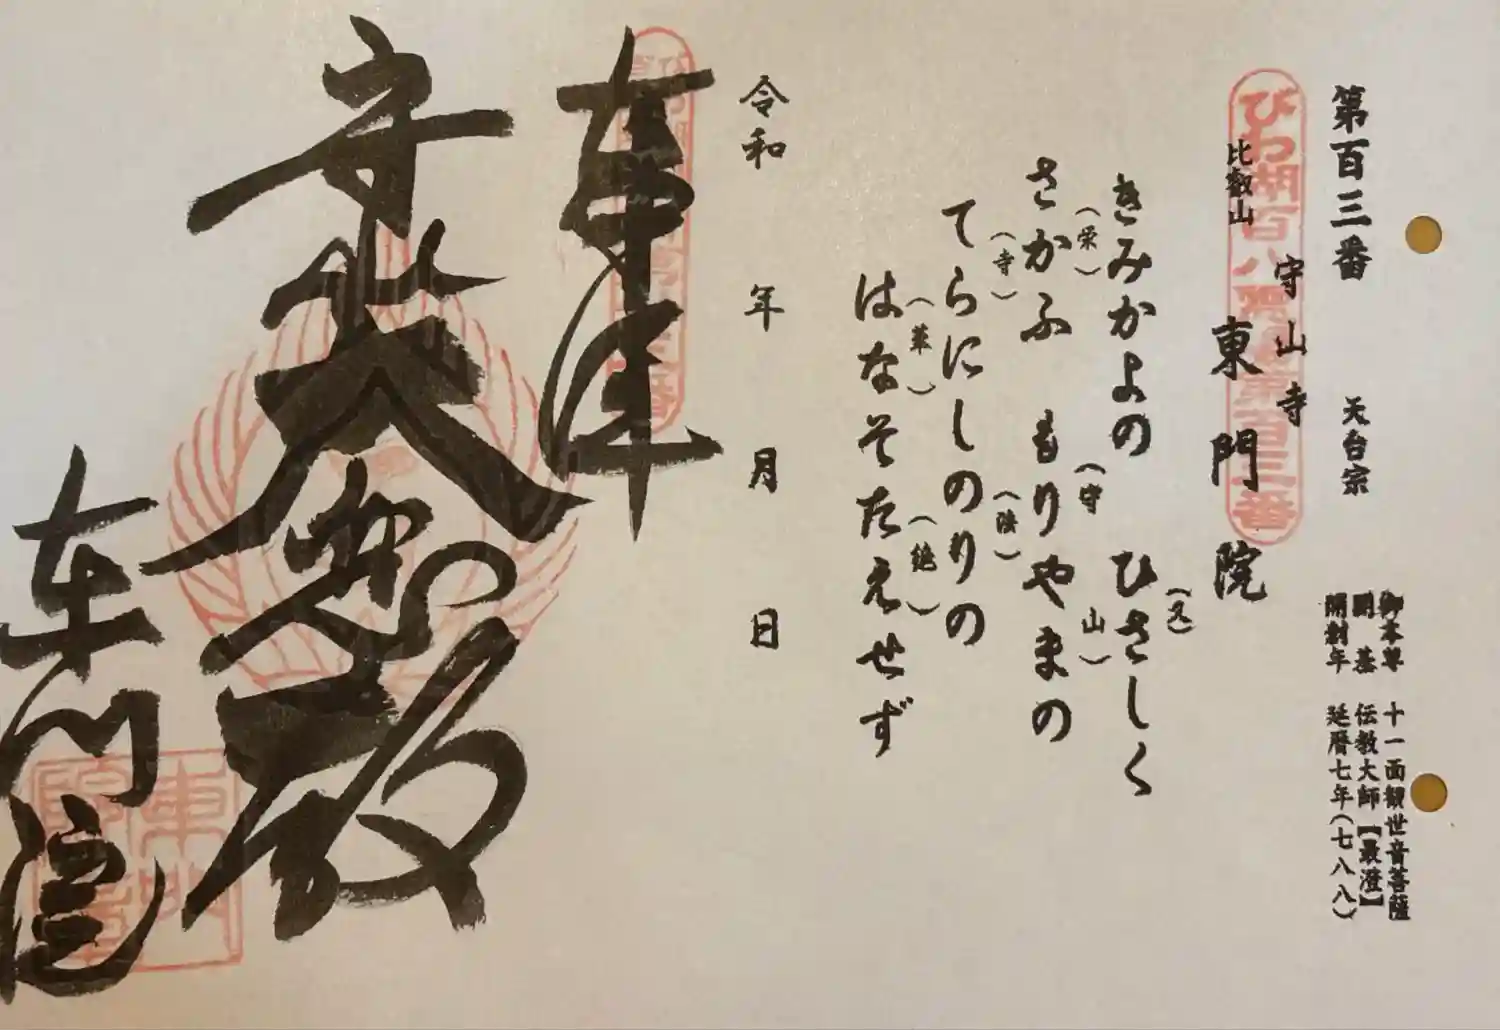 第百三番 天台宗
御本尊 十一面観世音菩薩
開基 伝教大師【最澄】
開創年 延暦七年(七八八)
びわ湖百八霊場第百三番
比叡山
守山寺
東門院
きみかよの ひさしく
(栄) (久)
さかふ もりやまの
(寺) (守 山)
てらにしのりの
(法)
はなそたえせず
(華) (絶)
令和 年 月 日
奉拝
東門院